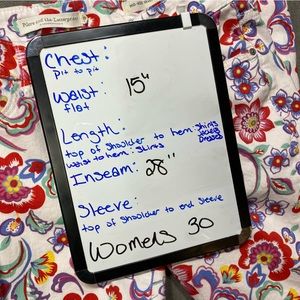 Chest:
pit to pit
Waist: 15"
flat
Length:
top of shoulder to hem: Shirts
Dresses
waist to hem: Skirts
Inseam: 28"
Sleeve:
top of shoulder to end Sleeve
Womens 30